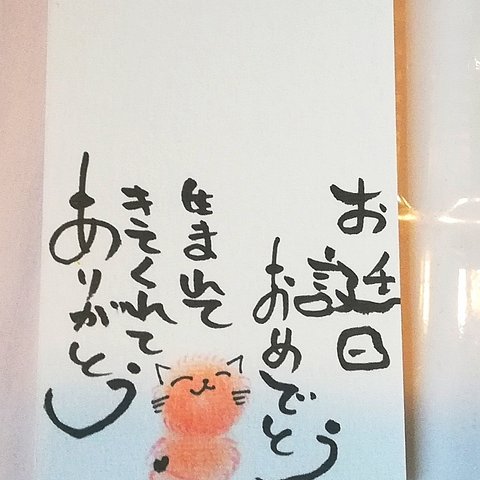 お誕生日
おめでとう
生まれて
きてくれて
ありがとう